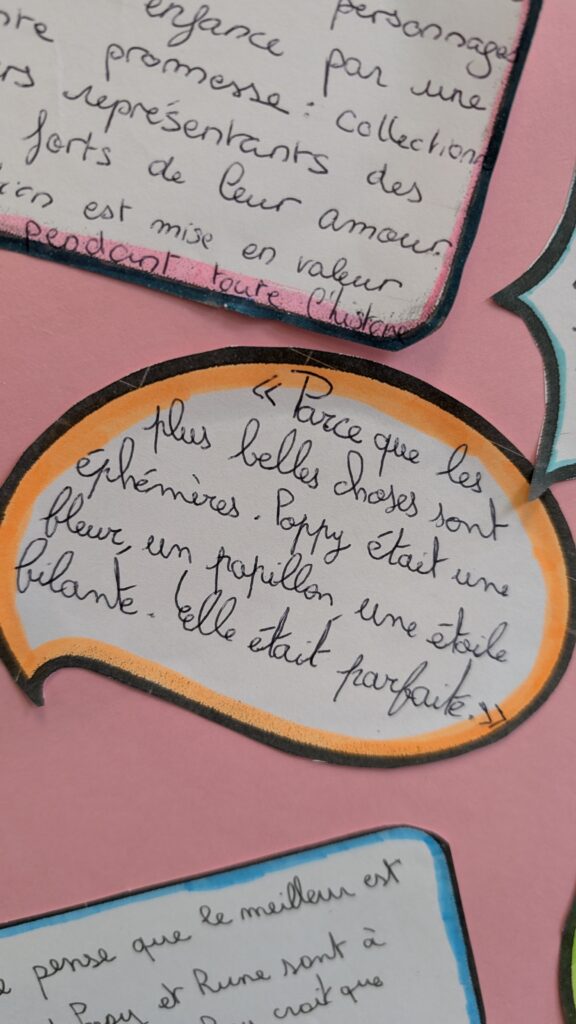 enfance personnages
par une
promesse : collection
représentants des
forts de leur amour.
est mise en valeur
pendant toute l'histoire
« Parce que les
plus belles choses sont
éphémères. Poppy était une
fleur, un papillon, une étoile
filante. Elle était parfaite. »
pense que le meilleur est
Poppy et Rune sont à
croit que